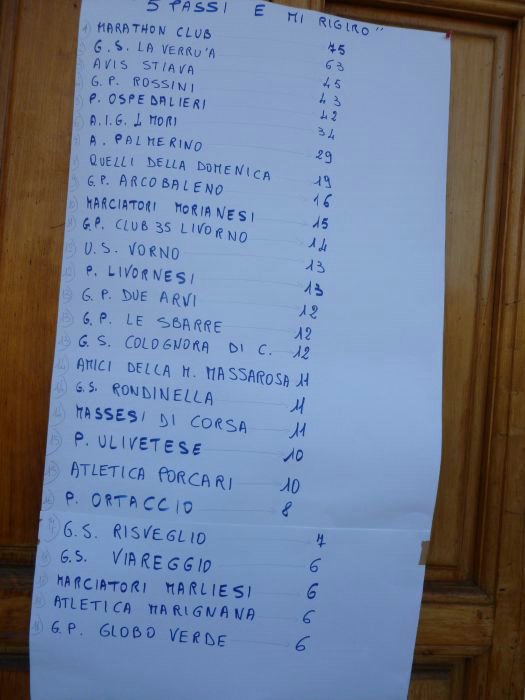 5 PASSI E MI RIGIRO"
MARATHON CLUB 75
G.S. LA VERRU'A 63
AVIS STIAVA 45
G.P. ROSSINI 43
P. OSPEDALIERI 42
A.I.G. 4 MORI 34
A. PALMERINO 29
QUELLI DELLA DOMENICA 19
G.P. ARCOBALENO 16
MARCIATORI MORIANESI 15
G.P. CLUB 35 LIVORNO 14
U.S. VORNO 13
P. LIVORNESI 13
G.P. DUE ARVI 12
G.P. LE SBARRE 12
G.S. COLOGNORA DI C. 12
AMICI DELLA M. MASSAROSA 11
G.S. RONDINELLA 11
MASSESI DI CORSA 11
P. ULIVETESE 10
ATLETICA PORCARI 10
P. ORTACCIO 8
G.S. RISVEGLIO 7
G.S. VIAREGGIO 6
MARCIATORI MARLIESI 6
ATLETICA MARIGNANA 6
G.P. GLOBO VERDE 6